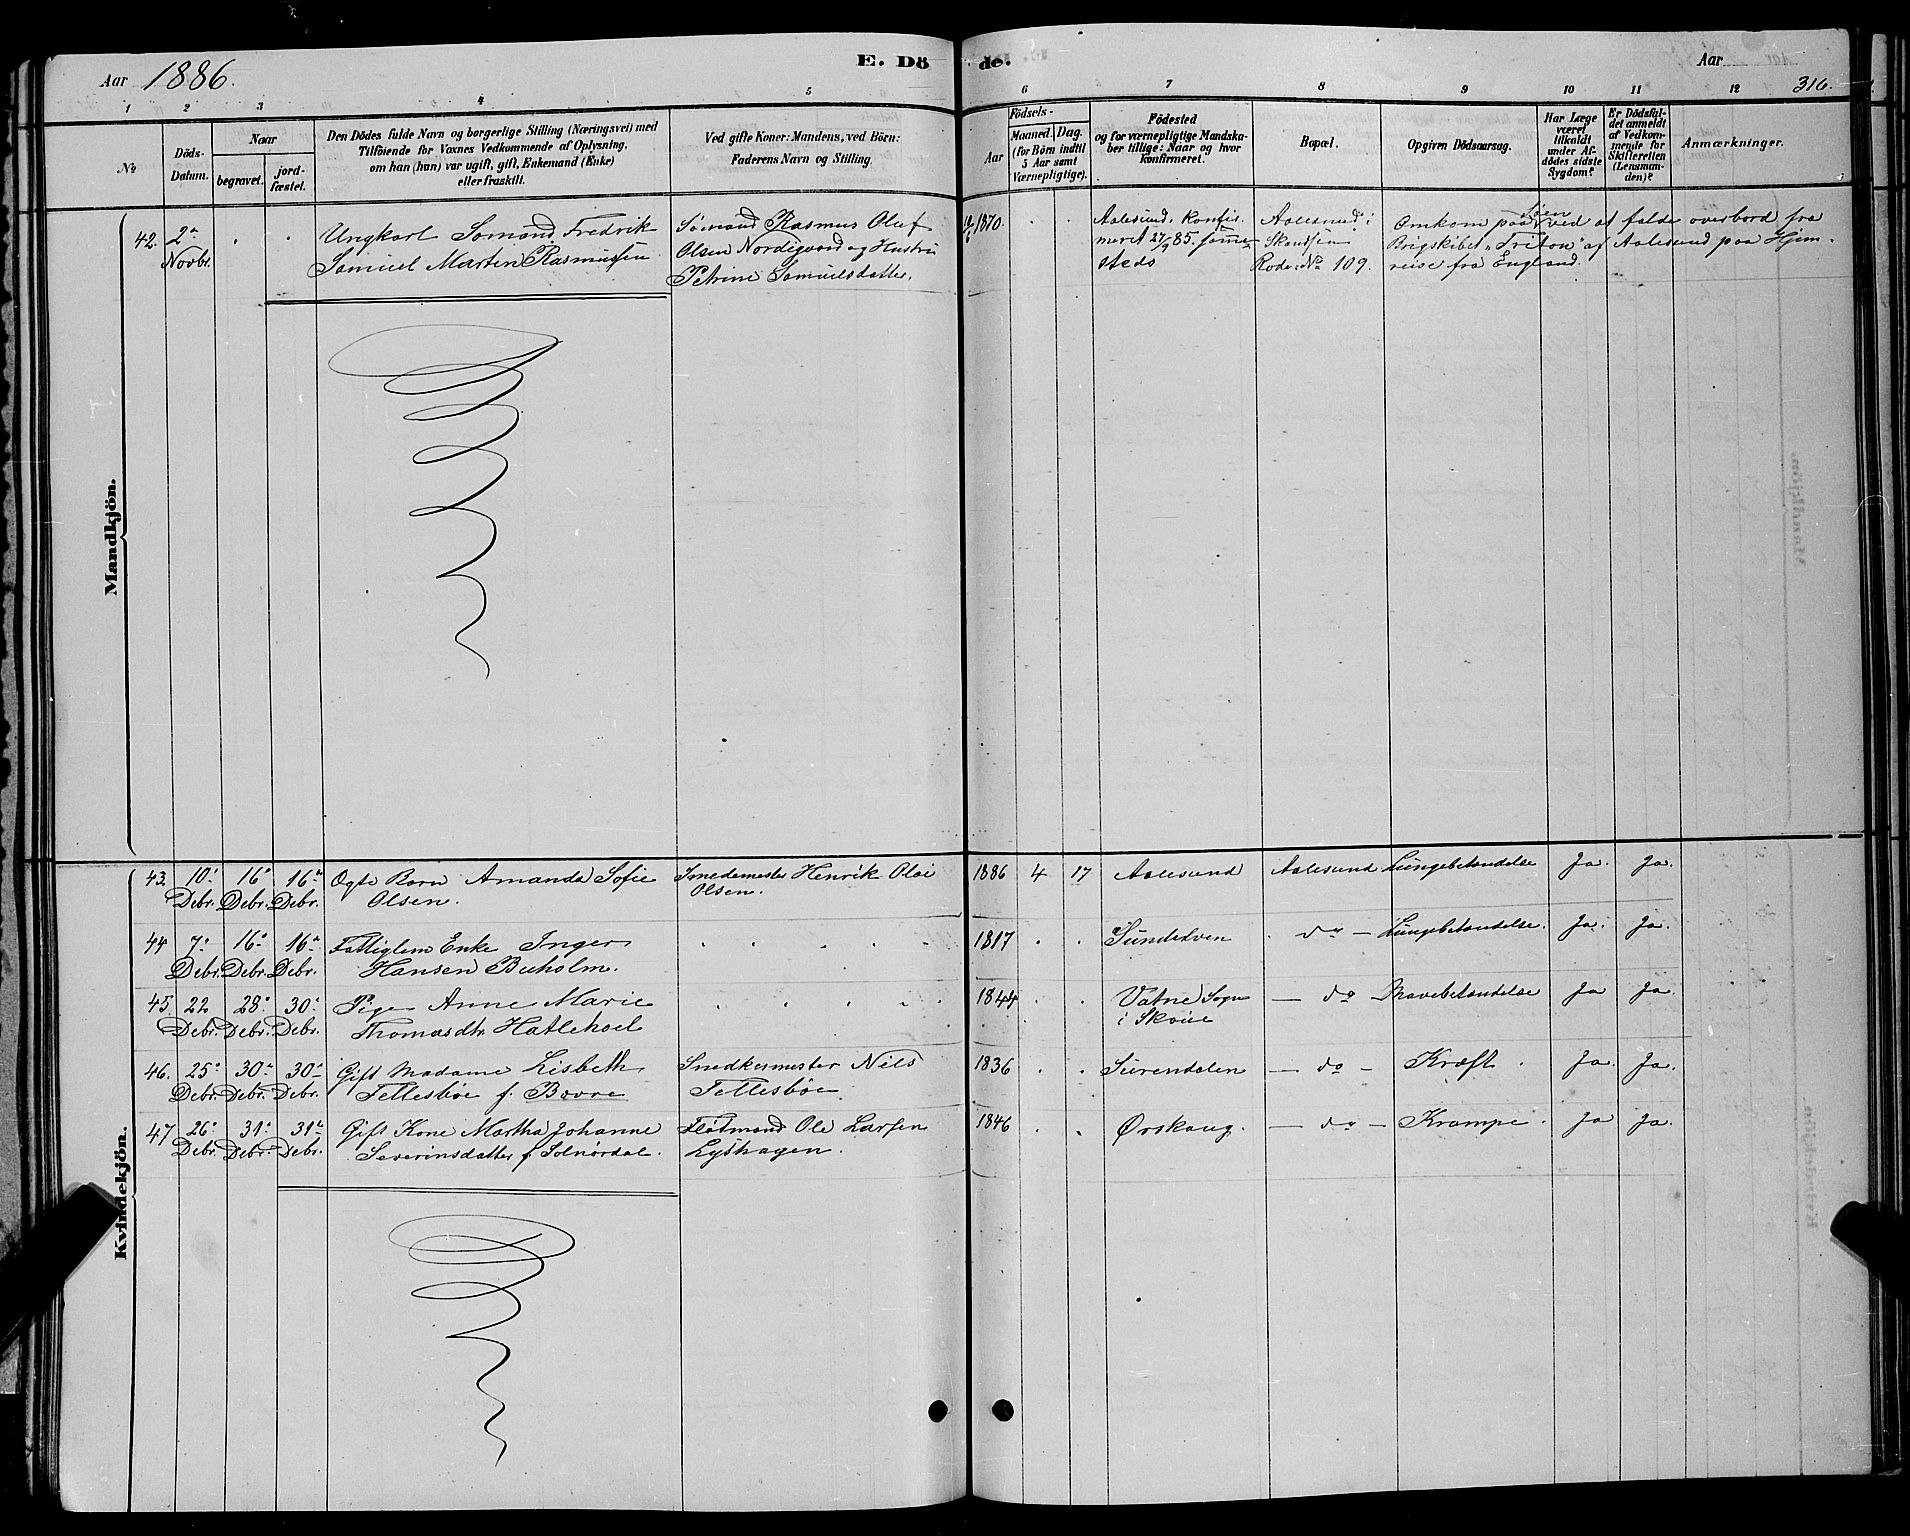 Aar 1886.
E. Döde.
Aar
316.
1 2 3 4 5 6 7 8 9 10 11 12
No
Döds-Datum.
Naar
begravet.
jordfæstet.
Den Dödes fulde Navn og borgerlige Stilling (Næringsvei) med
Tilföiende for Voxnes Vedkommende af Oplysning,
om han (hun) var ugift, gift, Enkemand (Enke)
eller fraskilt.
Ved gifte Koner: Mandens, ved Börn:
Faderens Navn og Stilling.
Födsels-
Aar
Maaned. Dag.
(for Börn indtil
5 Aar samt
Værnepligtige).
Födested
og for værnepligtige Mandska-
ber tillige: Naar og hvor
konfirmeret.
Bopæl.
Opgiven Dödsaarsag.
Har Læge
været
tilkaldt
under Af-
dödes sidste
Sygdom?
Er Dödsfal-
det anmeldt
af Vedkom-
mende for
Skifteretten
(Lensman-
den)?
Anmærkninger.
Mandkjön.
42. 2n Novbr. Ungkarl Sømand Fredrik
Samuel Martin Rasmussen
Sømand Rasmus Oluf
Olsen Nordigaard og Hustru
Petrine Samuelsdatter.
1870.
Aalesund. Konfir-
meret 27/9 85. samme-
steds
Aalesund i
Skandsen
Rode: No 109.
Omkom paa Søen ved at falde overbord fra
Brigskibet "Triton" af Aalesund paa Hjem-
reise fra England.
Kvindekjön.
43. 10. Debr. 16. Debr. 16. Debr. Ægte Barn Amanda Sofie
Olsen.
Smedemester Henrik Olai
Olsen.
1886 4 17 Aalesund Aalesund Lungebetændelse Ja. Ja.
44 7. Debr. 16. Debr. 16. Debr. Fattiglem Enke Inger
Hansen Buholm.
1817 Sundalven do Lungebetændelse. Ja. Ja.
45. 22 Debr. 28. Debr. 30. Debr. Pige Anne Marie
Thomasdtr Hatlehoel
1844 Vatne Sogn
i Skoue
do Mavebetændelse Ja Ja.
46. 25. Debr. 30. Debr. 30. Debr. Gift Madame Lisbeth
Tellesbøe f. Bovre
Snedkermester Nils
Tellesbøe
1836 Surendalen do Kræft. Ja. Ja.
47 26. Debr. 31. Debr. 31. Debr. Gift Kone Martha Johanne
Severinsdatter f. Solnørdal.
Flotmand Ole Larsen
Lyshagen.
1846 Ørskoug. do Krampe. Ja Ja.